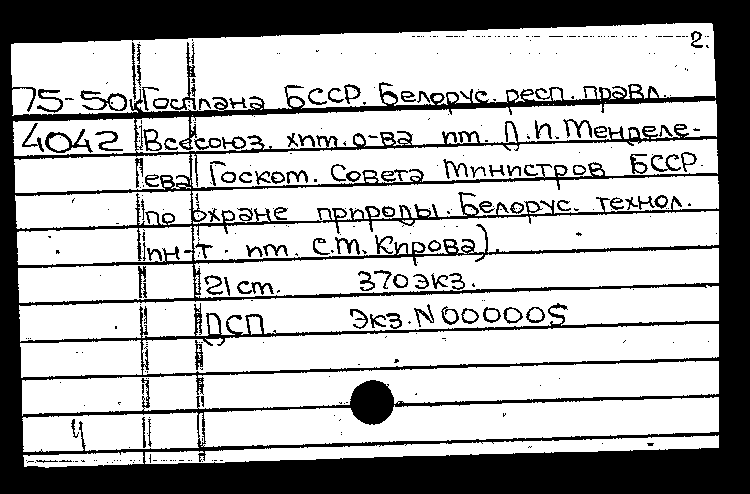 2.
75-50к Госплана БССР. Белорус. респ. правл.
4042 Всесоюз. хим. о-ва им. Д.И. Менделе-
ева Госком. Совета Министров БССР
по охране природы. Белорус. технол.
ин-т им. С.М. Кирова).
21 см. 370 экз.
ДСП. Экз. N 000005
4